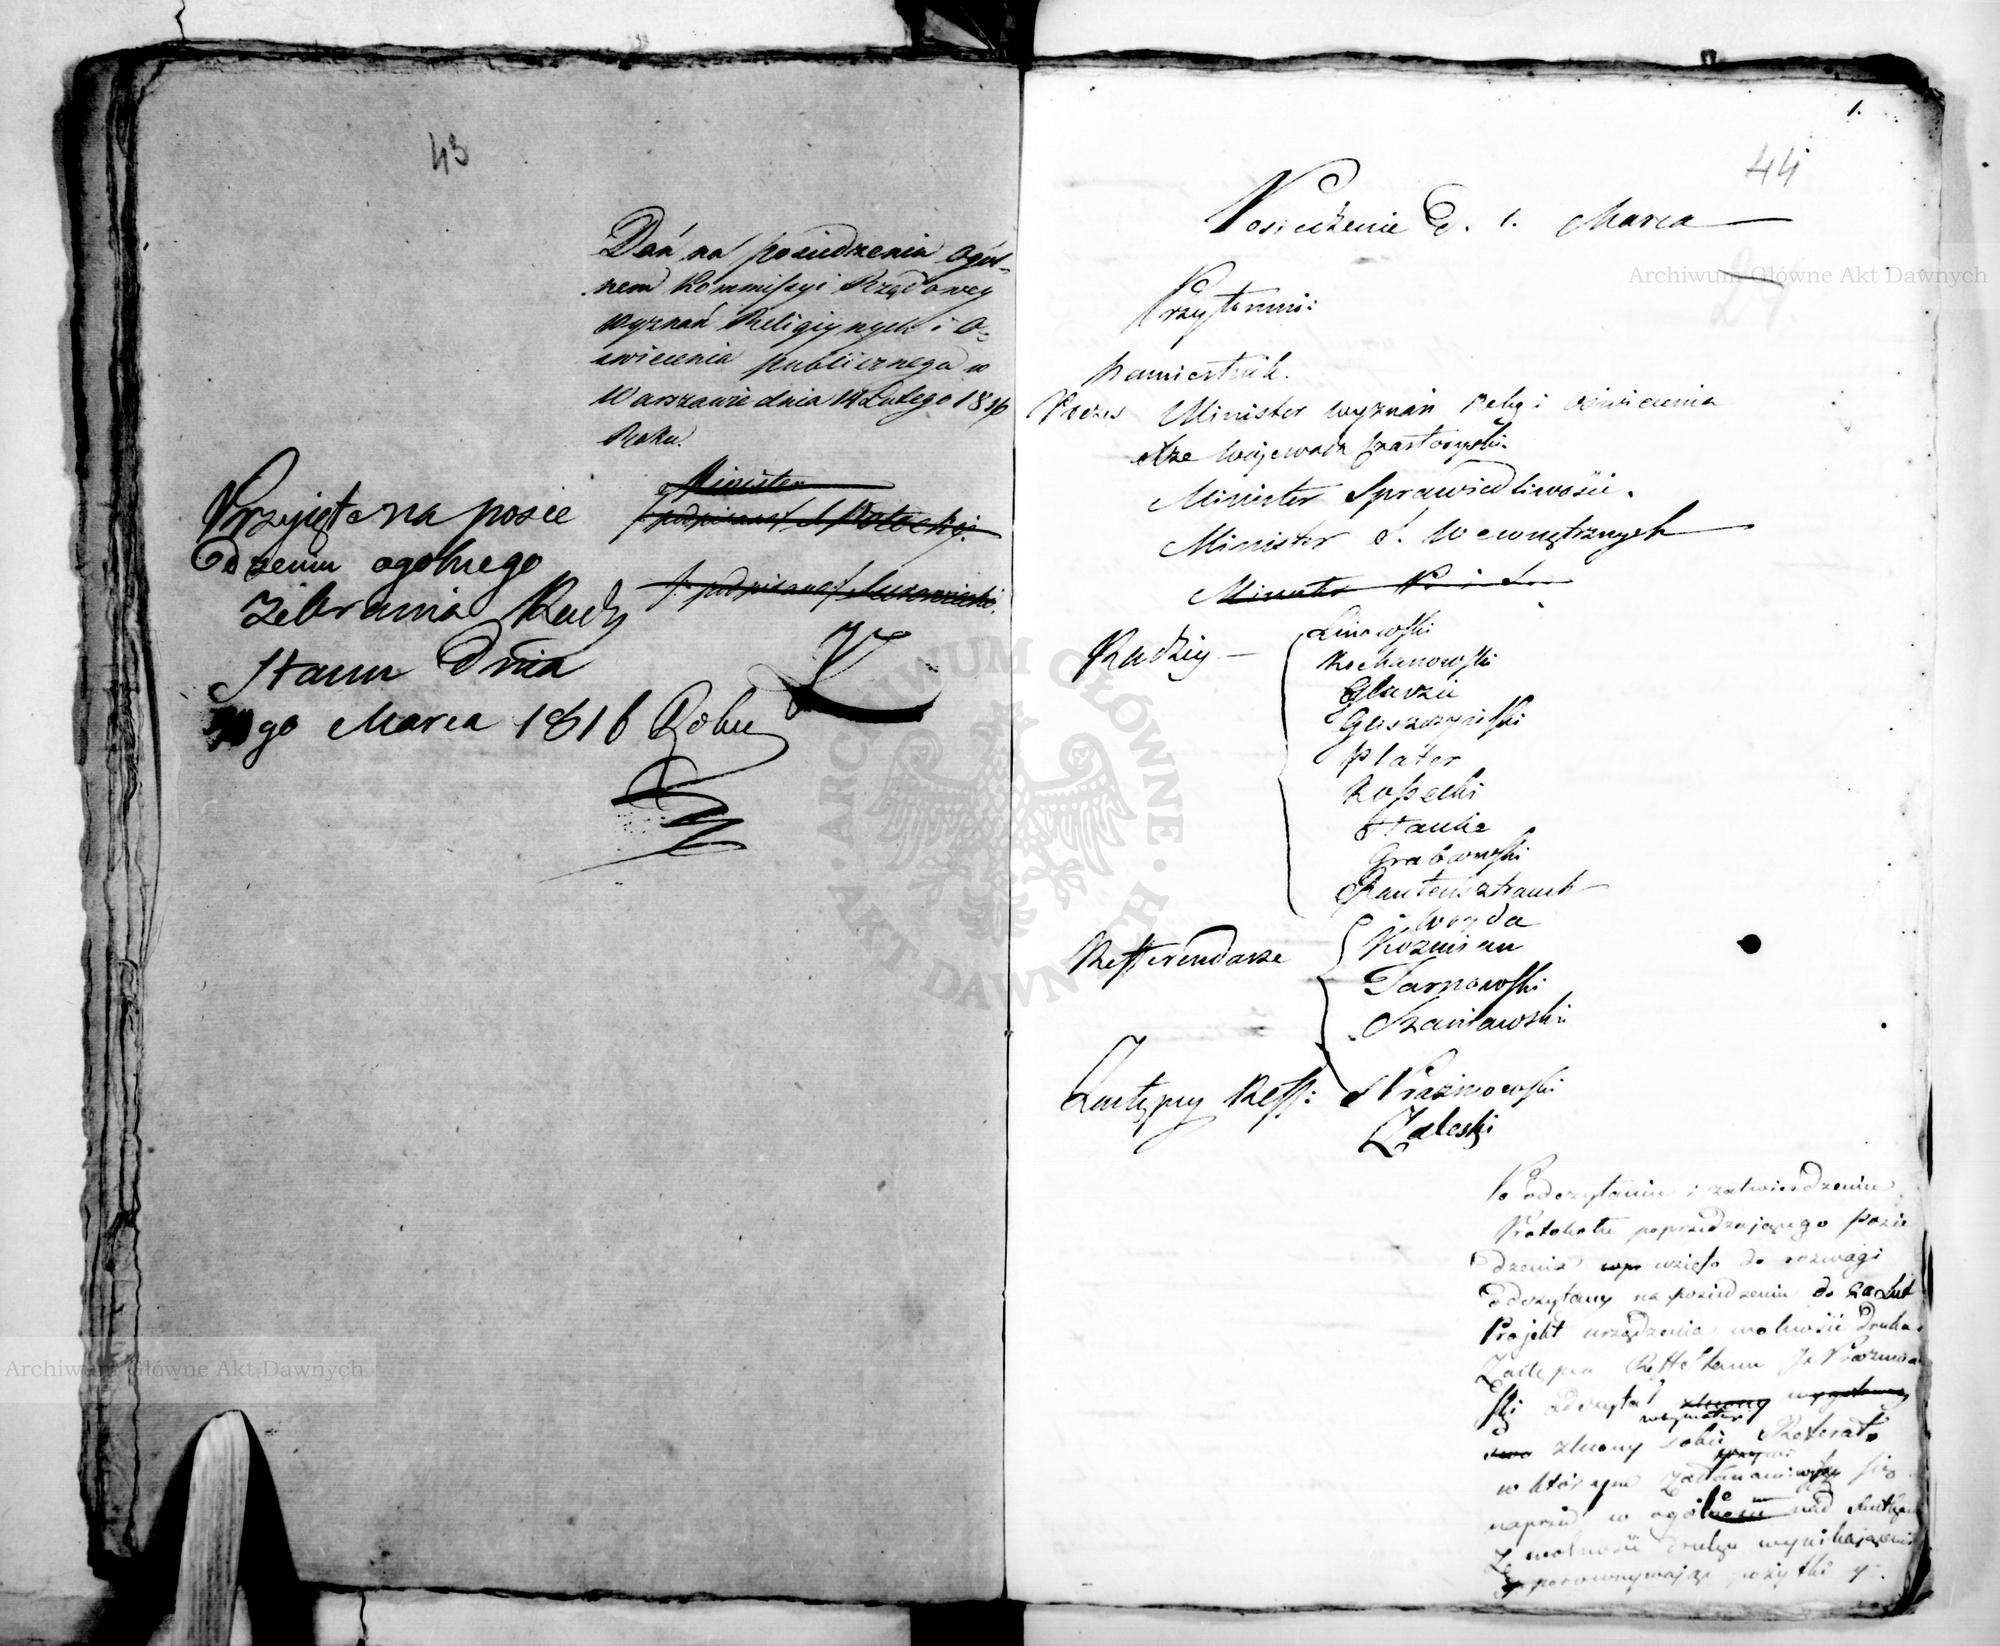 43
Dań na posiedzeniu ogól-
nem Kommissyi Rządowey
Wyznań Religiynych i O-
swiecenia publicznego w
Warszawie dnia 14 Lutego 1816
Roku.
Minister
/: podpisano :/ S Potocki
/: podpisano :/
Przyięte na posie
dzeniu ogolnego
Zebrania Rady
Stanu Dnia
go Marca 1816 Roku
1.
44
Posiedzenie D. 1. Marca
29.
Przytomni:
Namiestnik.
Prezes Minister wyznań Relig i oświecenia
Xże Wojewoda Czartoryski.
Minister Sprawiedliwości.
Minister S. Wewnętrznych
Minister
Radzcy —
Linowski
Kochanowski
Gliszczyński
Plater
Kossecki
Hauke
Grabowski
Rautensztrauch
Refferendarze
Woyda
Kozmian
Tarnowski
Szaniawski
Zastępcy Reff:
Prażmowski
Zaleski
Po odczytaniu i zatwierdzeniu
Protokołu poprzedzającego posie
dzenia wzięto do rozwagi
odczytany na posiedzeniu do Lut
Projekt urządzenia wolności druku.
Zastępca Reff Stanu Prażmo
ski odczytał zlecony wygotowany
zlecony sobie Referat
w którym się
naprzód w ogólności nad skutkami
Z wolności druku wynikającemi
porównywając pożytki y
Archiwum Główne Akt Dawnych
Archiwum Główne Akt Dawnych
ARCHIWUM GŁÓWNE AKT DAWNYCH